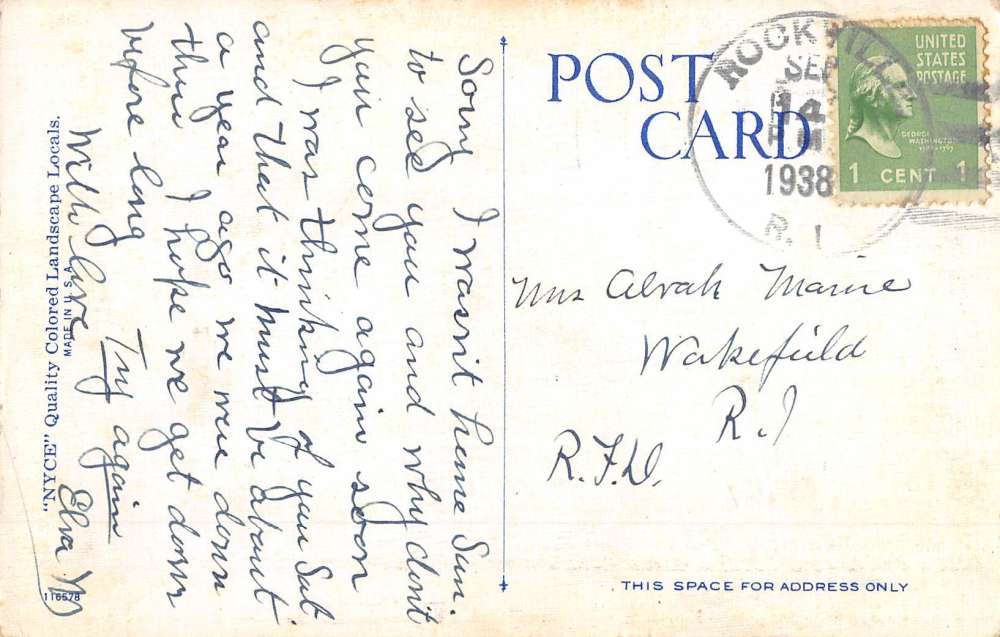 Sorry I wasn't home Sun.
to see you and why don't
you come again soon
I was thinking of you Sat
and that it must be about
a year ago we were down
there I hope we get down
before long
With love Try again
Elva M
"NYCE" Quality Colored Landscape Locals.
MADE IN U.S.A.
116578
POST
CARD
ROCKVILLE
SEP
14
PM
1938
R.I.
UNITED
STATES
POSTAGE
GEORGE
WASHINGTON
1789-1797
1 CENT 1
Mrs Alvah Maine
Wakefield
R.I
R.F.D.
THIS SPACE FOR ADDRESS ONLY